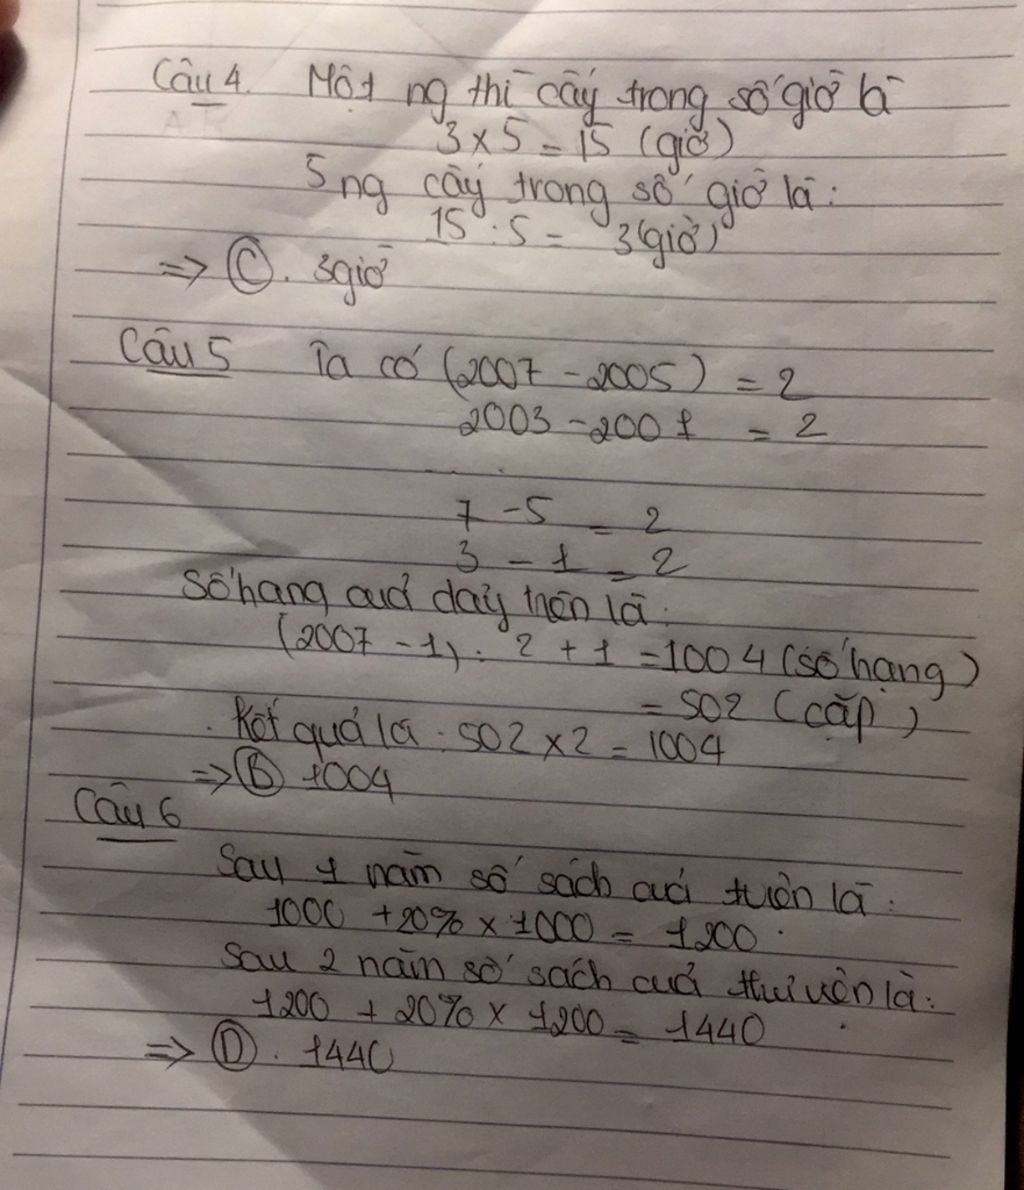 Câu 4. Một ng thì cấy trong số giờ là
3 x 5 = 15 (giờ)
5 ng cấy trong số giờ là :
15 : 5 = 3(giờ)
=> C. 3giờ
Câu 5 Ta có (2007 - 2005) = 2
2003 - 2001 = 2
7 - 5 = 2
3 - 1 = 2
Số hạng của dãy trên là :
(2007 - 1) : 2 + 1 = 1004 (số hạng)
= 502 (cặp)
Kết quả là : 502 x 2 = 1004
=> B 1004
Câu 6
Sau 1 năm số sách của là :
1000 + 20% x 1000 = 1200
Sau 2 năm số sách của thư viện là :
1200 + 20% x 1200 = 1440
=> D. 1440